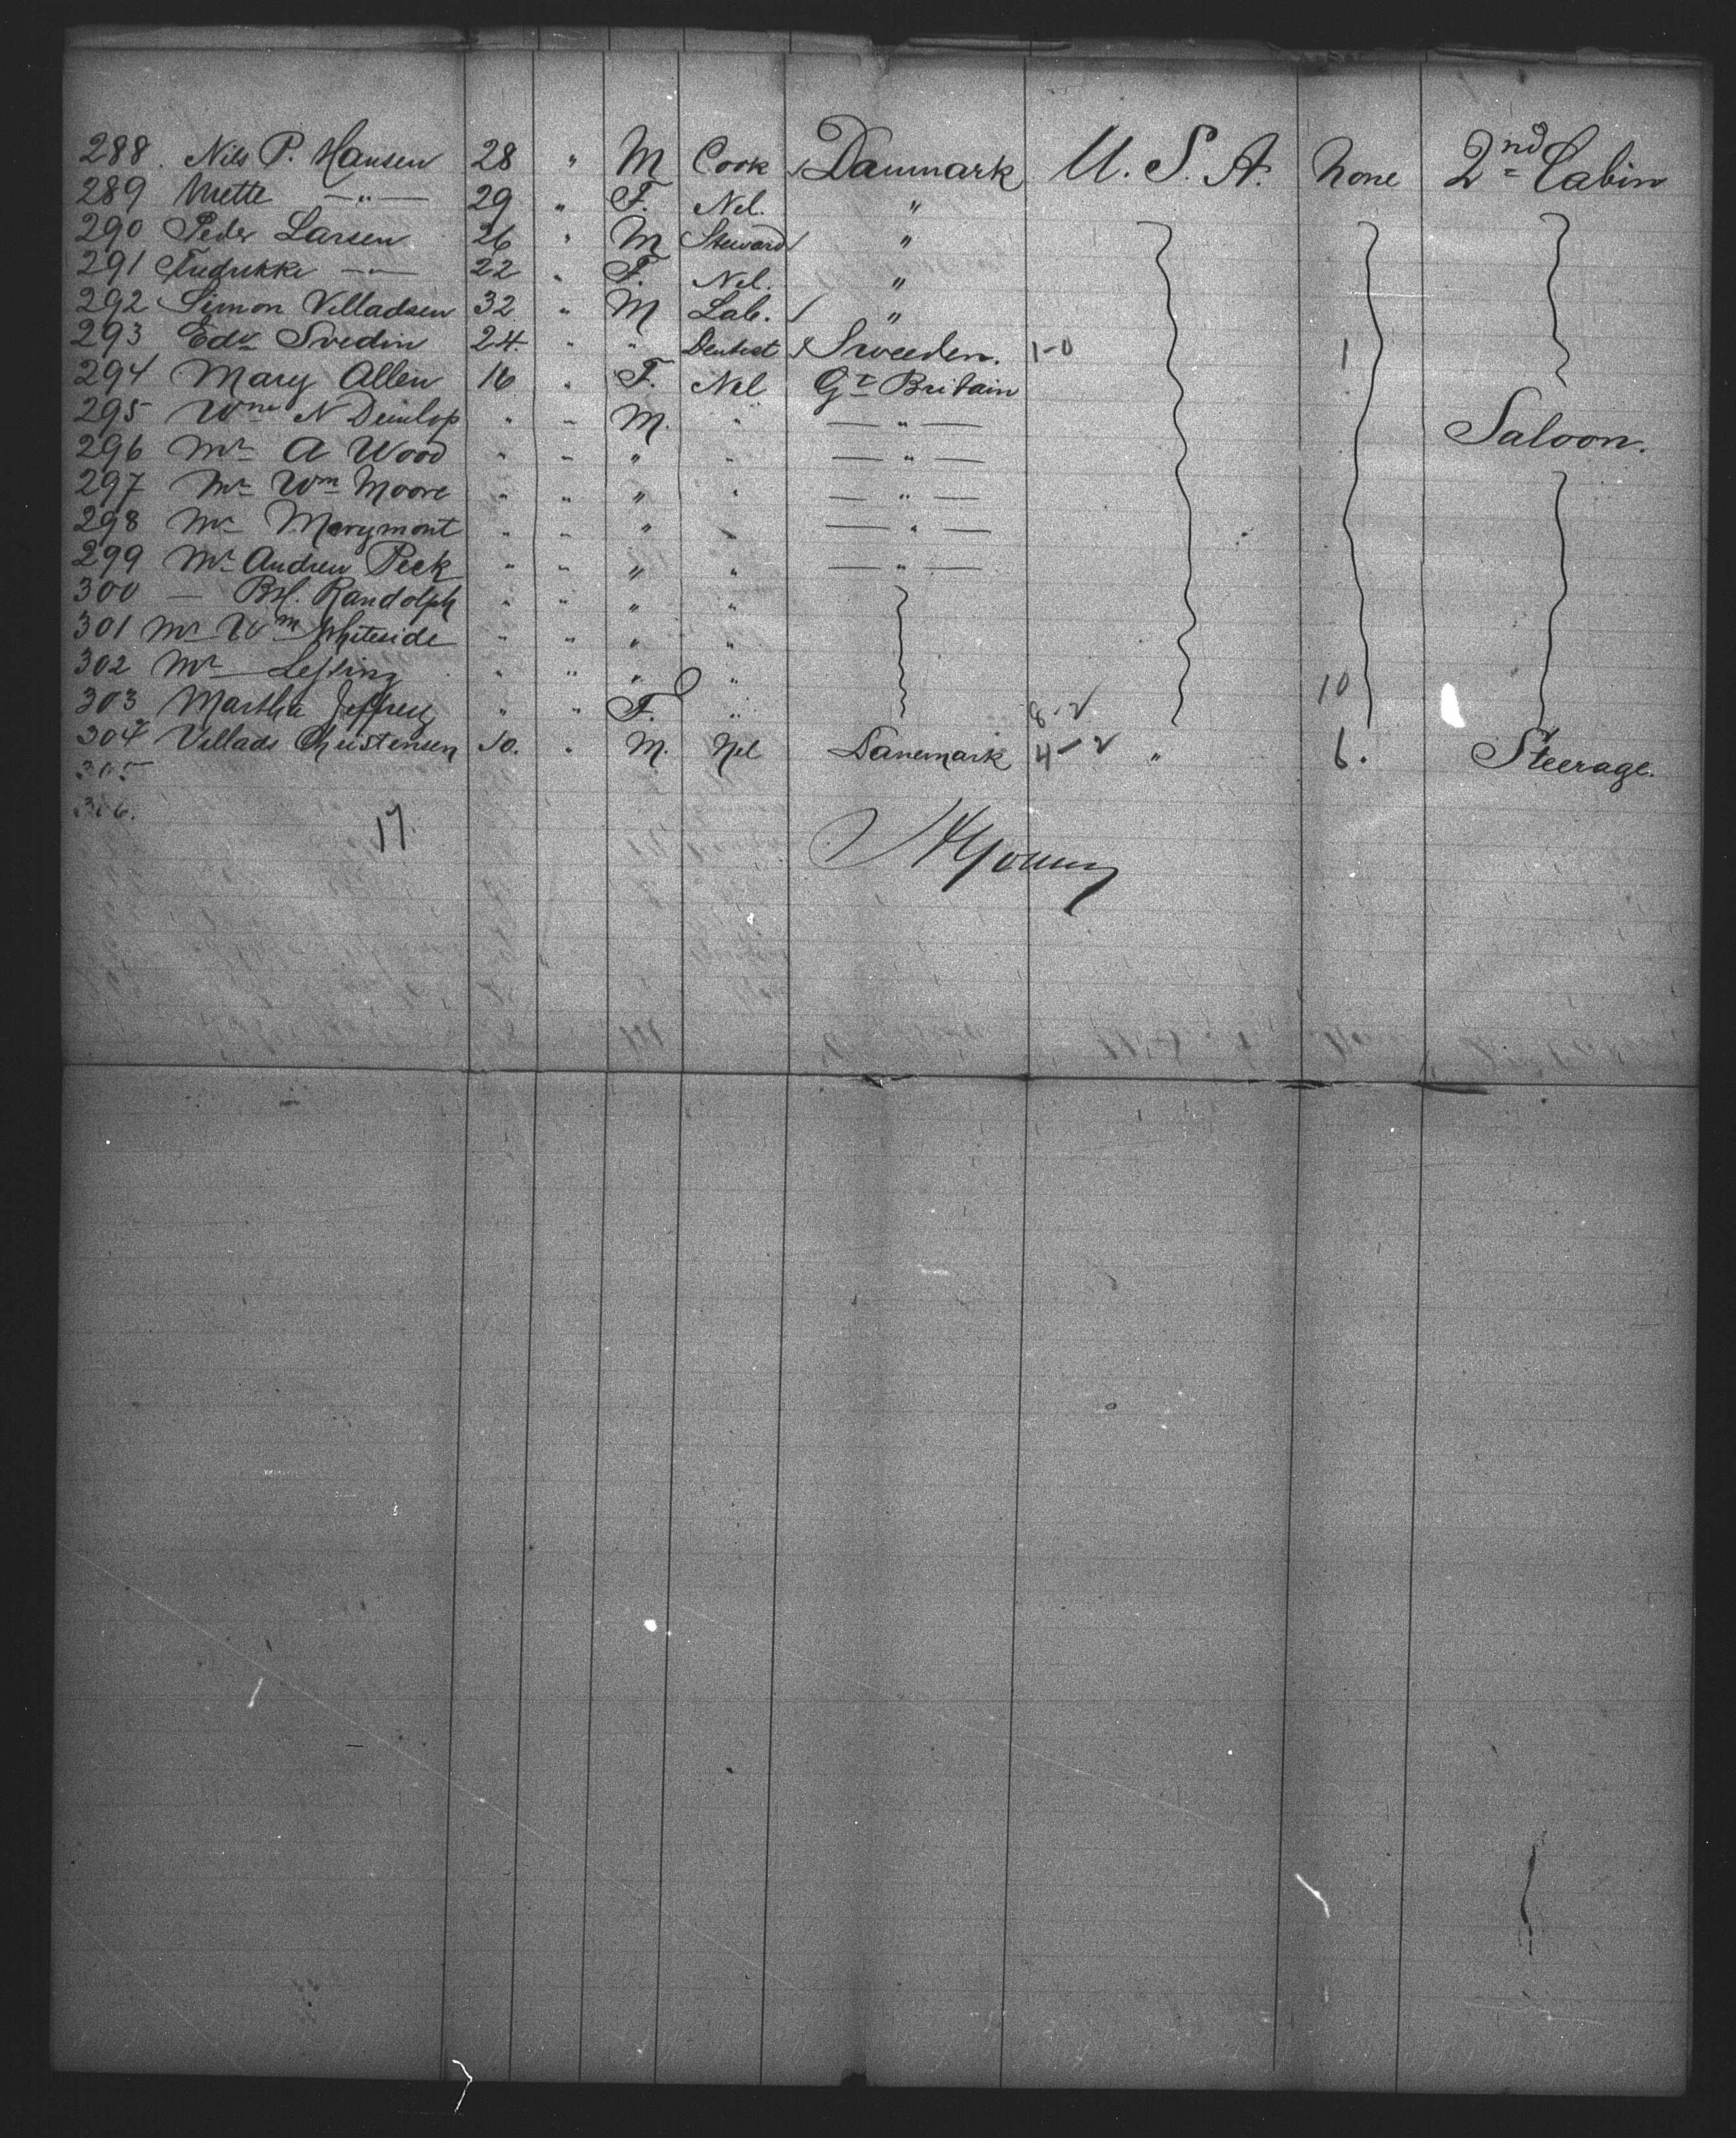 288. Nils P. Hansen 28 " M Cook Danmark U. S. A. None 2nd Cabin
289 Mette —"— 29 " F. Nil. "
290 Peder Larsen 26 " M Steward "
291 Fredrikke —"— 22 " F. Nil. "
292 Simon Villadsen 32 " M Lab. "
293 Edv Svedin 24. " " Dentist Sweeden. 1-0 1
294 Mary Allen 16 " F. Nil Gt Britain
295 Wm N Dunlop " " M. " — " — Saloon.
296 Mr A Wood " " " " — " —
297 Mr Wm Moore " " " " — " —
298 Mr Marymont " " " " — " —
299 Mr Andrew Peck " " " " — " —
300 — Randolph " " " "
301 Mr Wm Whiteside " " " "
302 Mr " " " "
303 Martha Jeffrey " " F. " 8-2 10
304 Villads Christensen 10. " M. Nil Danemark 4-2 " 6. Steerage.
305
306.
17.
Young